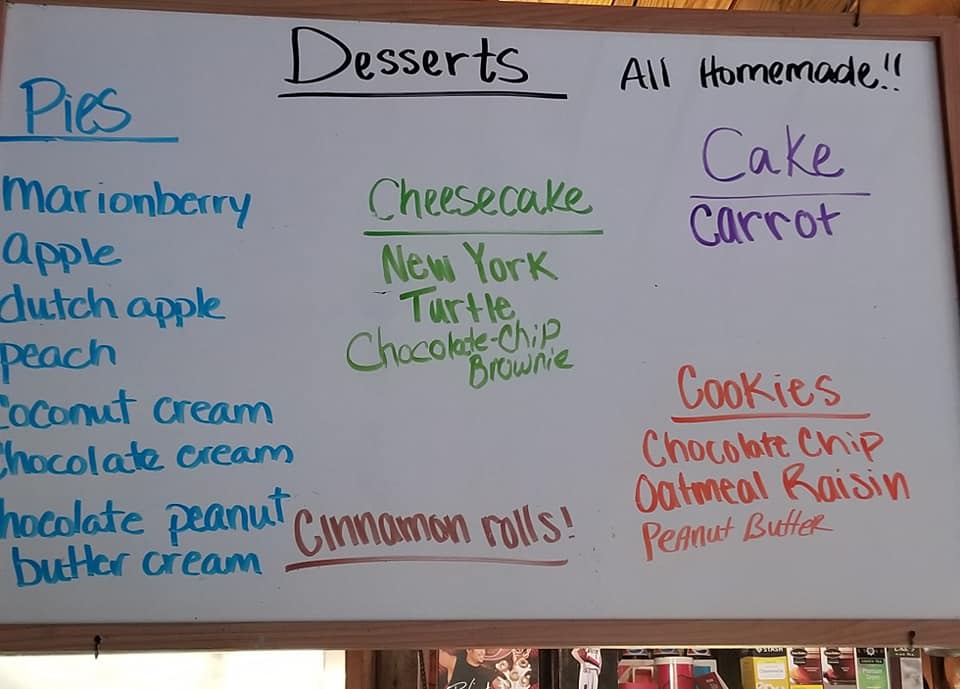 Desserts
All Homemade!!
Pies
marionberry
apple
dutch apple
peach
Coconut cream
Chocolate cream
hocolate peanut
butter cream
Cheesecake
New York
Turtle
Chocolate-Chip
Brownie
Cinnamon rolls!
Cake
Carrot
Cookies
Chocolate Chip
Oatmeal Raisin
Peanut Butter
STASH